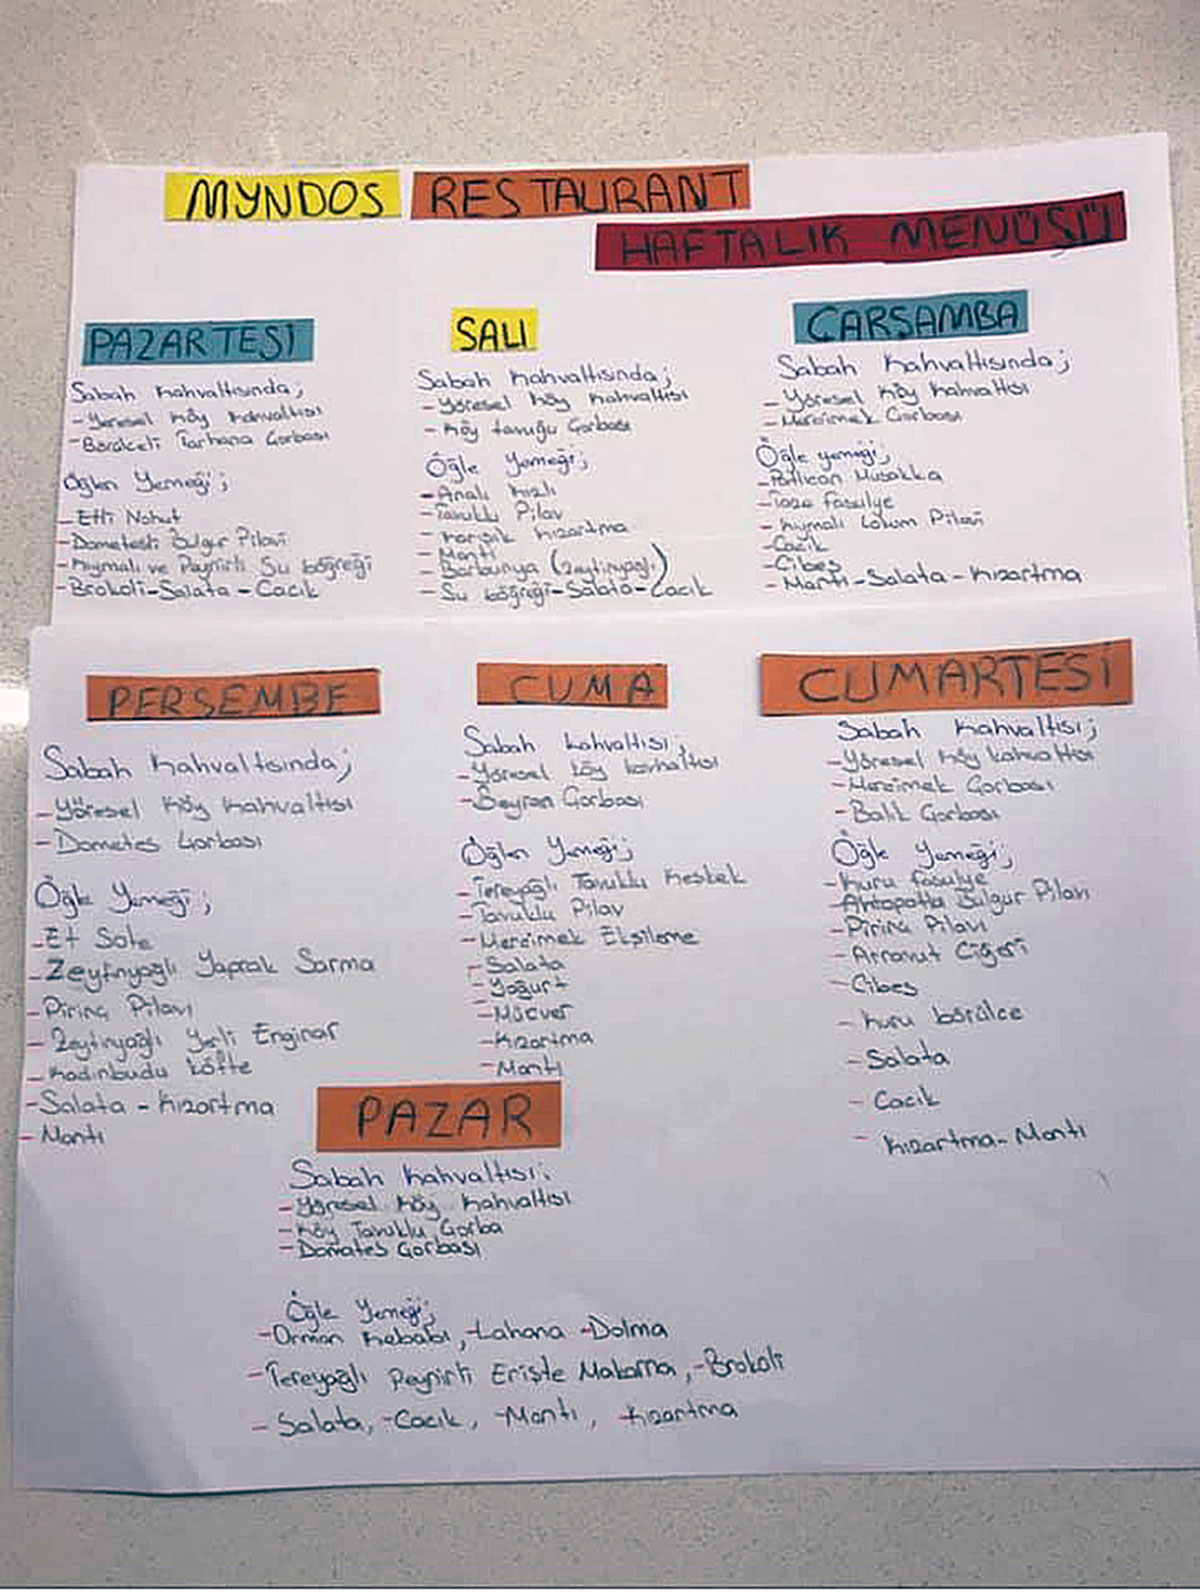 MYNDOS RESTAURANT
HAFTALIK MENÜSÜ
PAZARTESİ
Sabah Kahvaltısında;
-Yöresel Köy Kahvaltısı
-Börülceli Tarhana Çorbası
Öğlen Yemeği;
-Etli Nohut
-Dometesli Bulgur Pilavı
-Kıymalı ve Peynirli Su böğreği
-Brokoli-Salata-Cacık
SALI
Sabah Kahvaltısında;
-Yöresel Köy Kahvaltısı
-Köy tavuğu Çorbası
Öğle Yemeği;
-Analı Kızlı
-Tavuklu Pilav
-Karışık Kızartma
-Mantı
-Barbunya (Zeytinyağlı)
-Su böğreği-Salata-Cacık
ÇARŞAMBA
Sabah Kahvaltısında;
-Yöresel Köy Kahvaltısı
-Mercimek Çorbası
Öğle yemeği;
-Patlıcan Musakka
-Taze fasulye
-Kıymalı Lokum Pilavı
-Cacık
-Cibes
-Mantı-Salata-Kızartma
PERŞEMBE
Sabah Kahvaltısında;
-Yöresel Köy Kahvaltısı
-Dometes Çorbası
Öğle Yemeği;
-Et Sote
-Zeytinyağlı Yaprak Sarma
-Pirinç Pilavı
-Zeytinyağlı Yerli Enginar
-Kadınbudu Köfte
-Salata-Kızartma
-Mantı
CUMA
Sabah kahvaltısı;
-Yöresel köy kavhaltısı
-Beyran Çorbası
Öğlen Yemeği;
-Tereyağlı Tavuklu Keşkek
-Tavuklu Pilav
-Mercimek Ekşileme
-Salata
-Yoğurt
-Mücver
-Kızartma
-Mantı
CUMARTESİ
Sabah Kahvaltısı;
-Yöresel Köy kahvaltısı
-Mercimek Çorbası
-Balık Çorbası
Öğle Yemeği;
-Kuru fasulye
-Ahtapotlu Bulgur Pilavı
-Pirinç Pilavı
-Arnavut Ciğeri
-Cibes
-Kuru börülce
-Salata
-Cacık
-Kızartma-Mantı
PAZAR
Sabah Kahvaltısı;
-Yöresel Köy Kahvaltısı
-Köy Tavuklu Çorba
-Domates Çorbası
Öğle Yemeği;
-Orman Kebabı,-Lahana-Dolma
-Tereyağlı Peynirli Erişte Makarna,-Brokoli
-Salata,-Cacık,-Mantı,-Kızartma